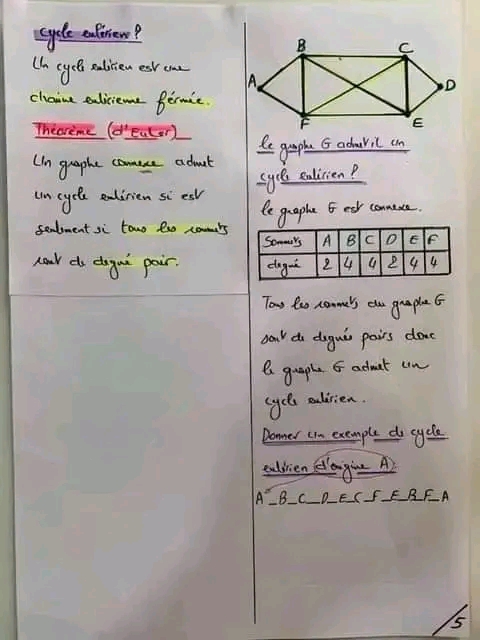 cycle eulérien ?
Un cycle eulérien est une
chaine eulerienne fermée.
Théorème (d'Euler)
Un graphe connexe admet
un cycle eulérien si est
seulement si tous les sommets
sont de degré pair.
A
B
C
D
F
E
Le graphe G admet il un
cycle eulérien ?
Le graphe G est connexe.
Sommets A B C D E F
degré 2 4 4 2 4 4
Tous les sommets du graphe G
sont de degrés pairs donc
le graphe G admet un
cycle eulérien.
Donner un exemple de cycle
eulérien d'origine A)
A_B_C_D_E_C_F_E_B_F_A
/5